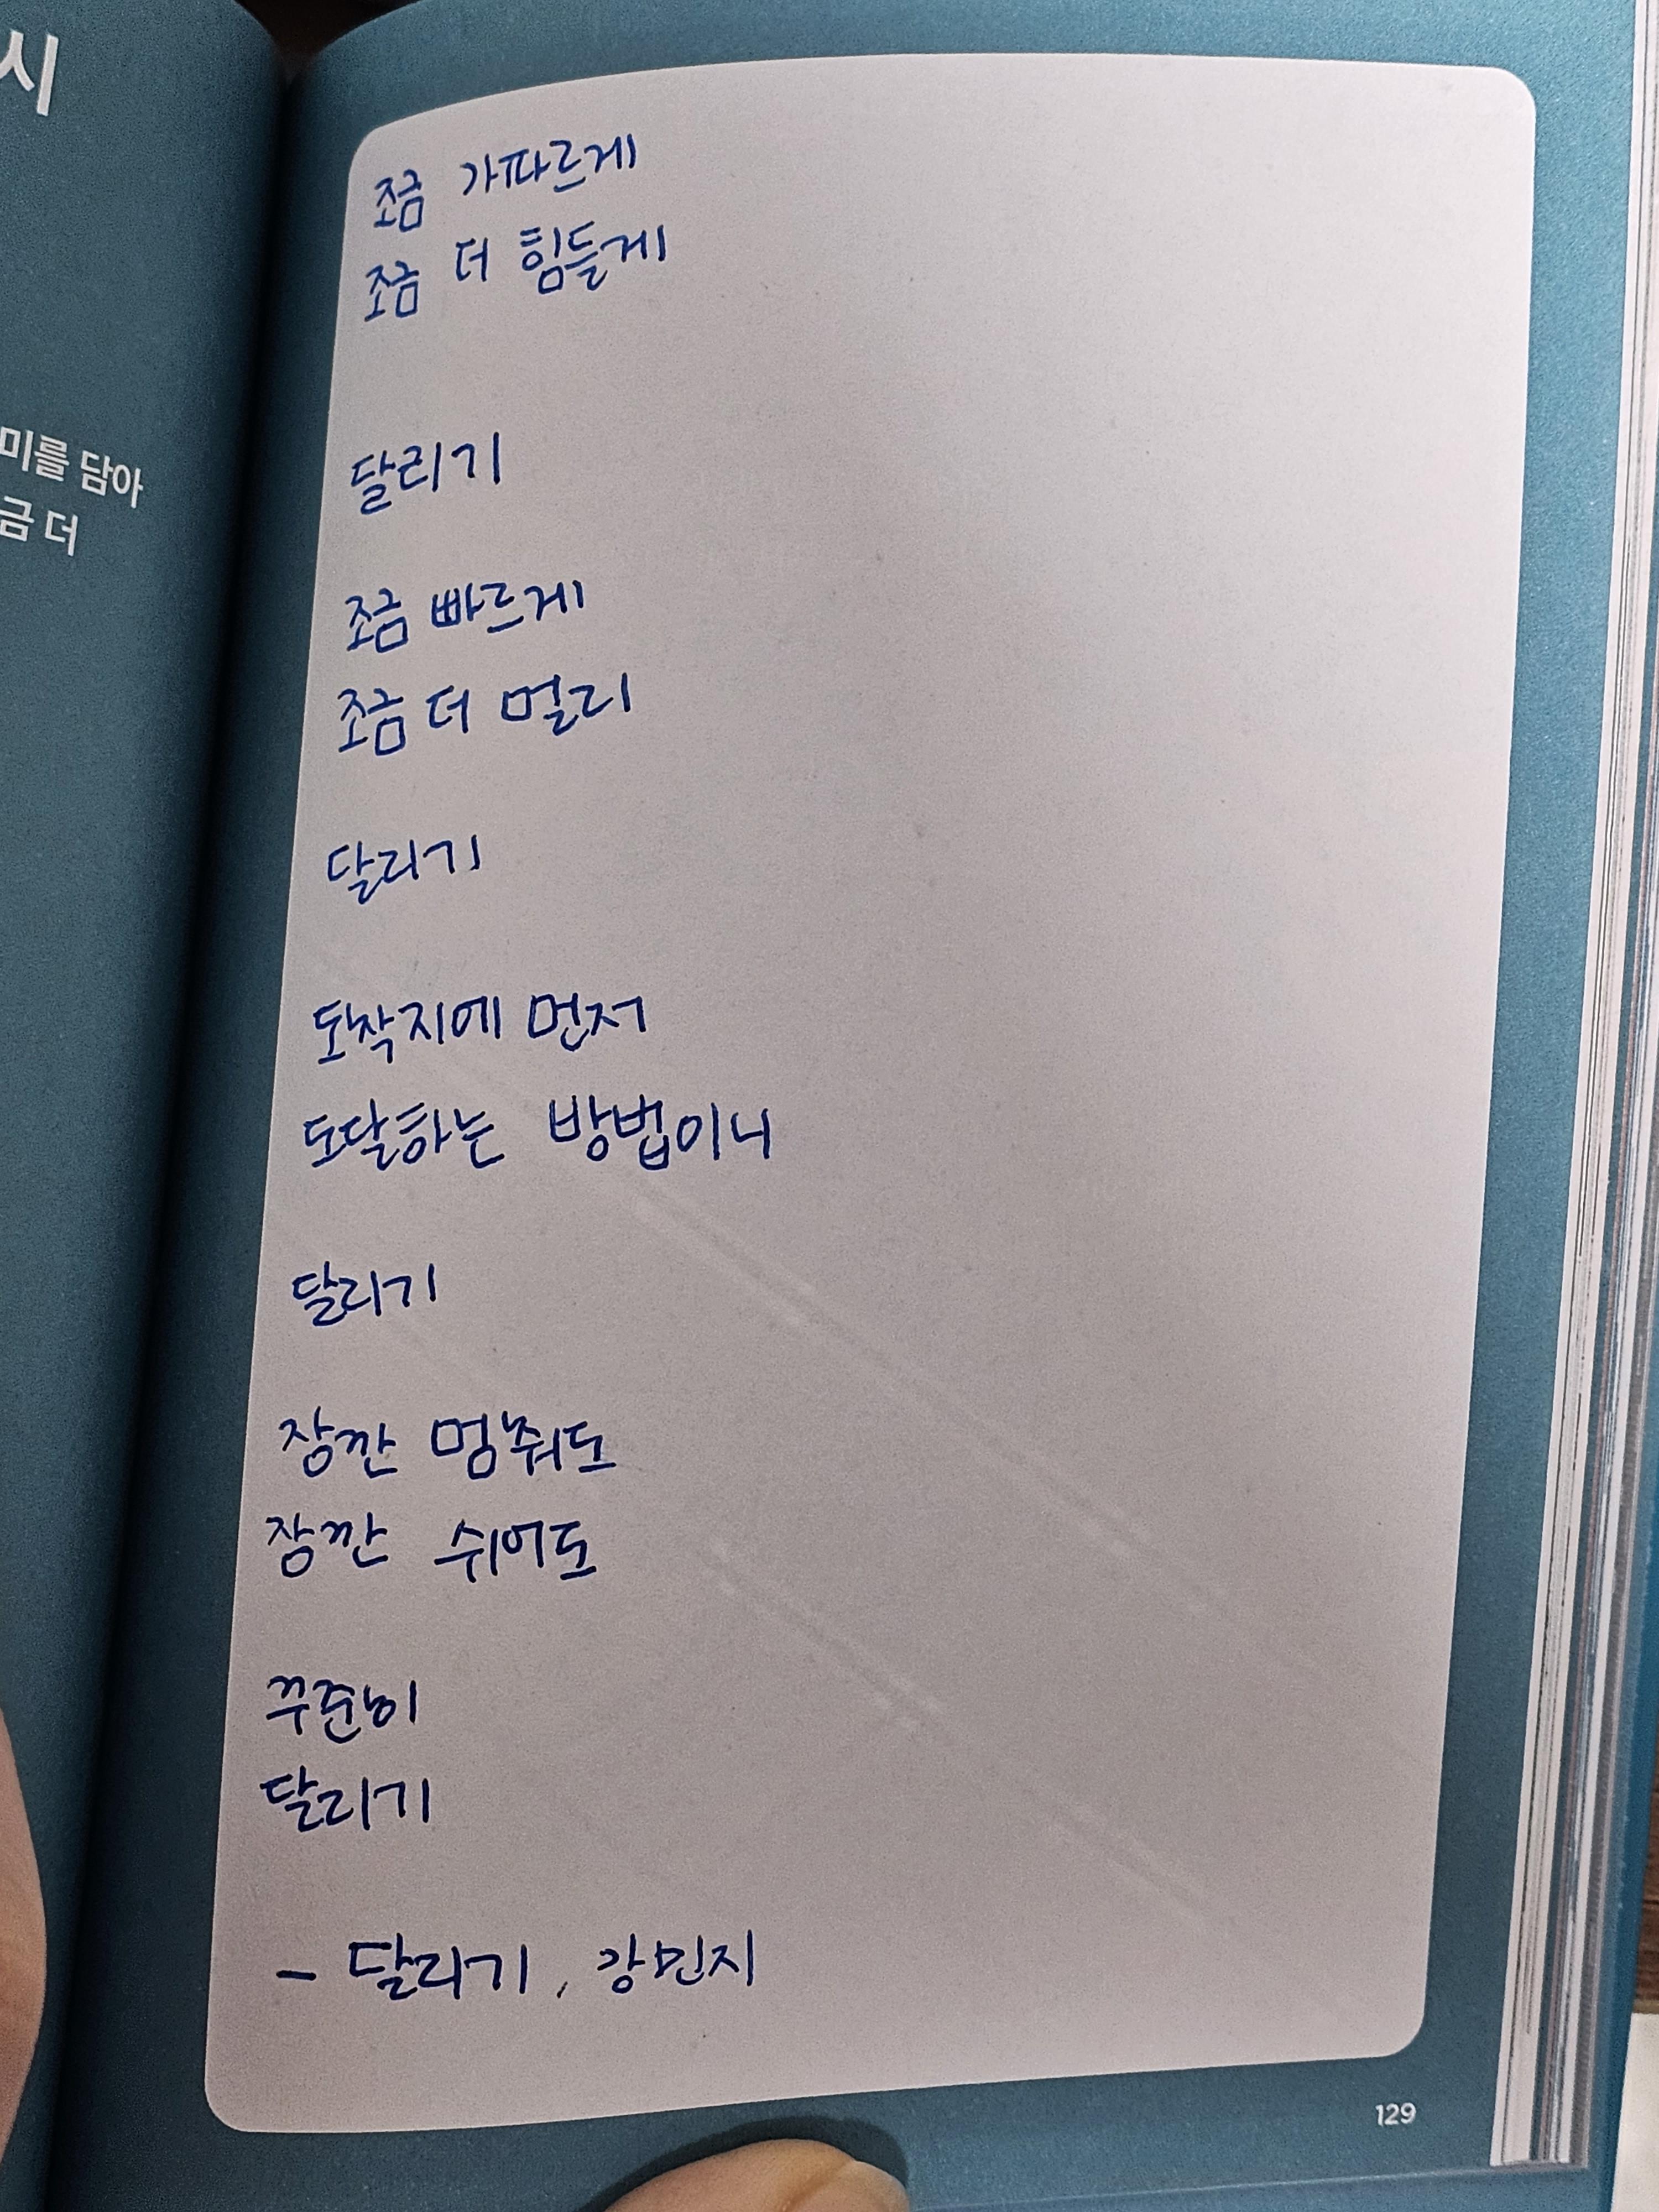 시
미를 담아
금 더
조금 가파르게
조금 더 힘들게
달리기
조금 빠르게
조금 더 멀리
달리기
도착지에 먼저
도달하는 방법이니
달리기
잠깐 멈춰도
잠깐 쉬어도
꾸준히
달리기
- 달리기, 강민지
129